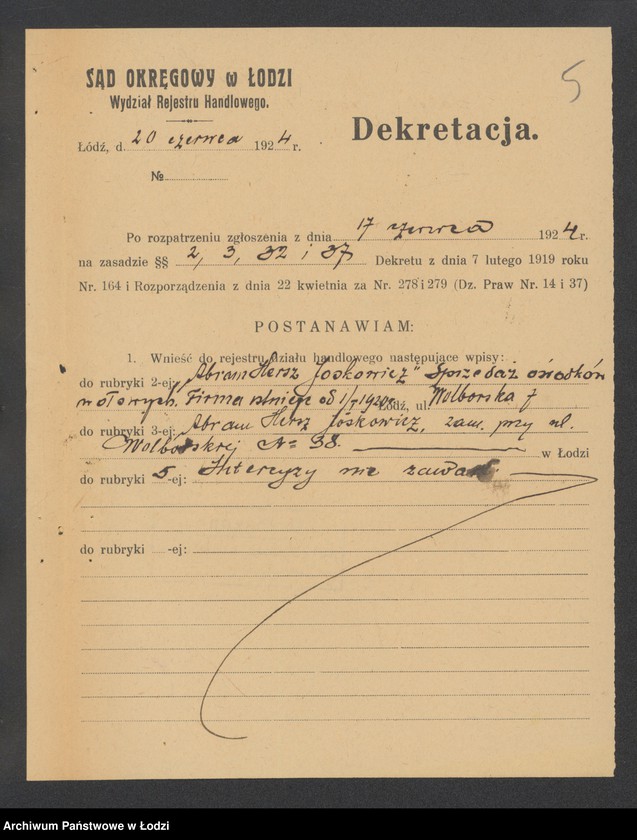 5
SĄD OKRĘGOWY w ŁODZI
Wydział Rejestru Handlowego.
Dekretacja.
Łódź, d. 20 czerwca 1924 r.
№
Po rozpatrzeniu zgłoszenia z dnia 17 czerwca 1924 r.
na zasadzie §§ 2, 3, 32 i 37 Dekretu z dnia 7 lutego 1919 roku
Nr. 164 i Rozporządzenia z dnia 22 kwietnia za Nr. 278 i 279 (Dz. Praw Nr. 14 i 37)
POSTANAWIAM:
1. Wnieść do rejestru działu handlowego następujące wpisy:
do rubryki 2-ej: „Abram Hersz Joskowicz" Sprzedaż ośrodków
Firma istnieje od 1/I 1920 r. Łódź, ul. Wolborska
do rubryki 3-ej: Abram Hersz Joskowicz, zam. przy ul.
Wolborskiej № 38. w Łodzi
do rubryki 5-ej: Intercyzy nie zawarł.
do rubryki -ej:
Archiwum Państwowe w Łodzi